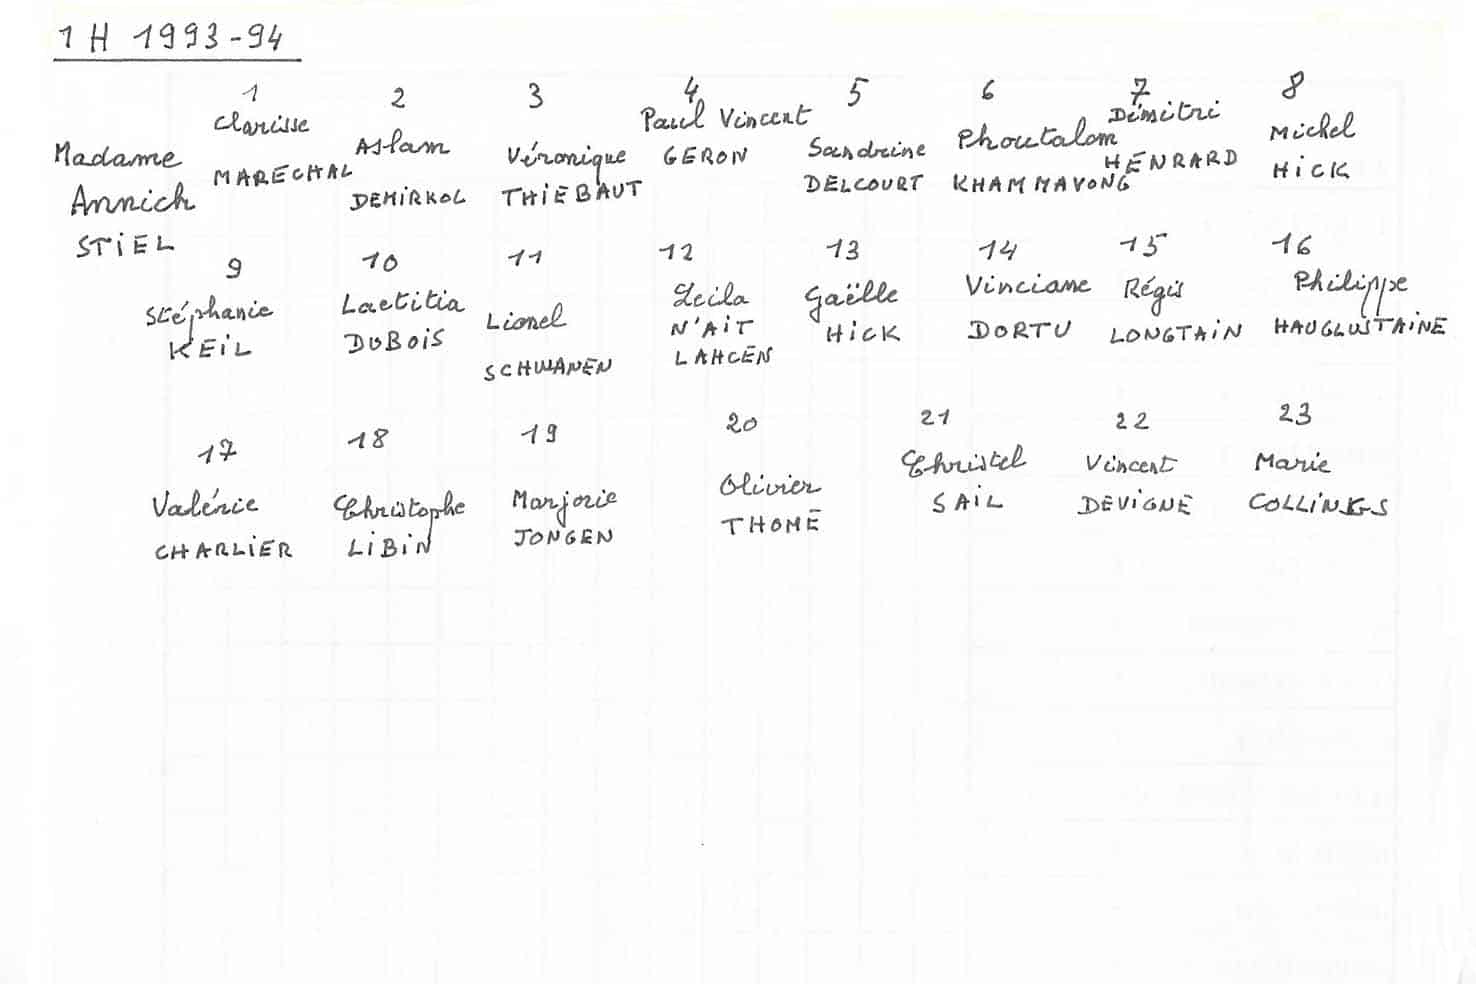 1 H 1993-94
1 2 3 4 5 6 7 8
Madame Annich STIEL
Clarisse MARECHAL
Aslam DEMIRKOL
Véronique THIEBAUT
Paul Vincent GERON
Sandrine DELCOURT
Phoutalom KHAMMAVONG
Dimitri HENRARD
Michel HICK
9 10 11 12 13 14 15 16
Stéphanie KEIL
Laetitia DUBOIS
Lionel SCHWANEN
Leila N'AIT LAHCEN
Gaëlle HICK
Vinciane DORTU
Régis LONGTAIN
Philippe HAUGLUSTAINE
17 18 19 20 21 22 23
Valérie CHARLIER
Christophe LIBIN
Marjorie JONGEN
Olivier THOMÉ
Christel SAIL
Vincent DEVIGNE
Marie COLLINGS